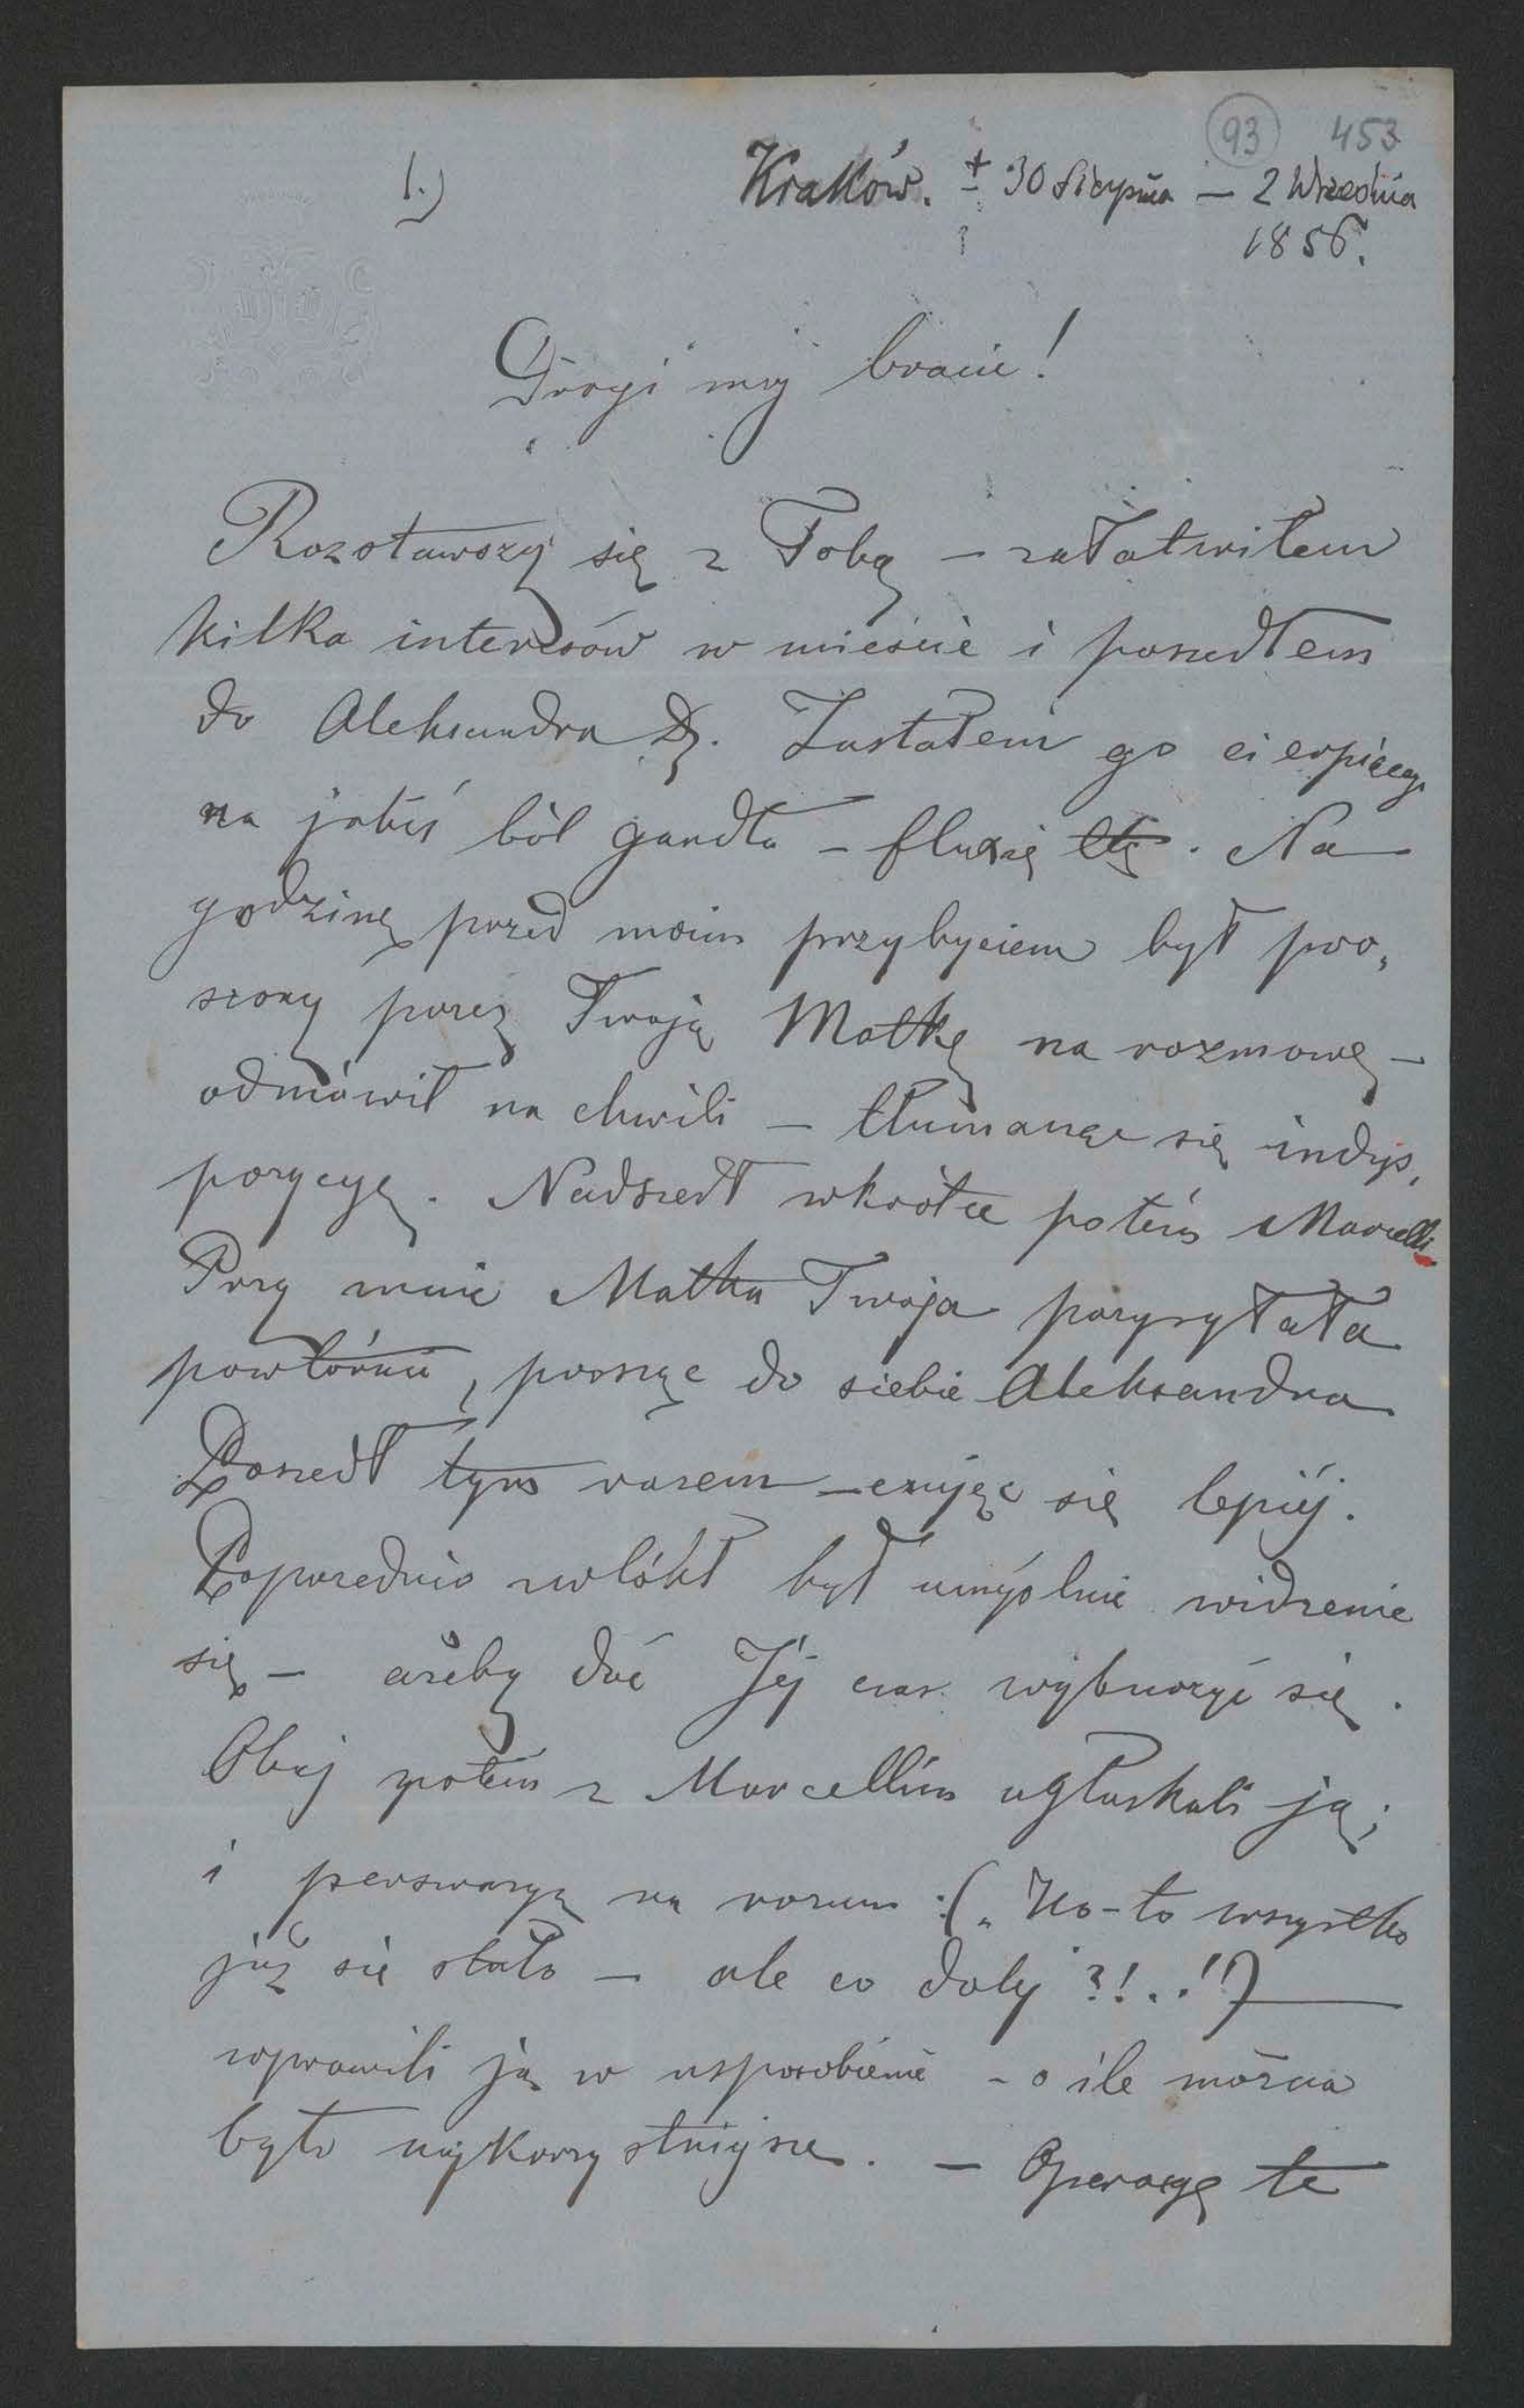 93 453
1.) Kraków. ± 30 Sierpnia — 2 Września
? 1856.
Drogi mój bracie!
Rozstawszy się z Tobą — załatwiłem
kilka interesów w mieście i poszedłem
do Aleksandra D. Zastałem go cierpiącego
na jakiś ból gardła — fluxię etc. Na
godzinę przed moim przybyciem był pro„
szony przez Twoją Matkę na rozmowę —
odmówił na chwili — tłumacząc się indys„
pozycyą. Nadszedł wkrótce potém Marcelli
Przy mnie Matka Twoja przysyłała
powtórnie, prosząc do siebie Aleksandra
Poszedł tym razem — czując się lepiéj.
Poprzednio zwlókł był umyślnie widzenie
się — ażeby dać Jéj czas wyburzyć się.
Obaj potém z Marcellim ugłaskali ją;
i perswazyą na rozum: („No-to wszystko
już się stało — ale co daléj ?!..")
wprawili ją w usposobienie — o ile można
było najkorzystniejsze. — Operacyę tę